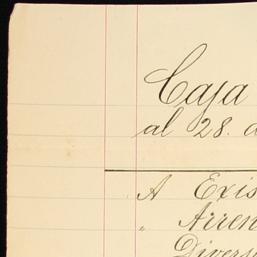 Caja
al 28. d
A Exis
„ Arren
Divers